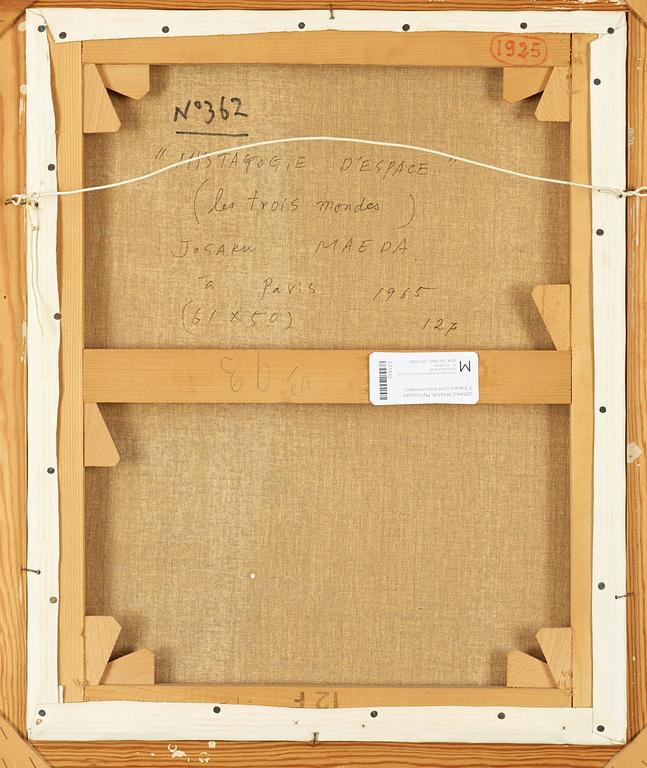 1925
N°362
"MISTAGOGIE D'ESPACE"
(les trois mondes)
JOSAKU MAEDA.
à Paris 1965
(61 x 50) 12F
N° 93
M
JOSAKU MAEDA, Mystagogie
d´Espace (Les trois mondes).
SEK 20 000 - 25 000
12F